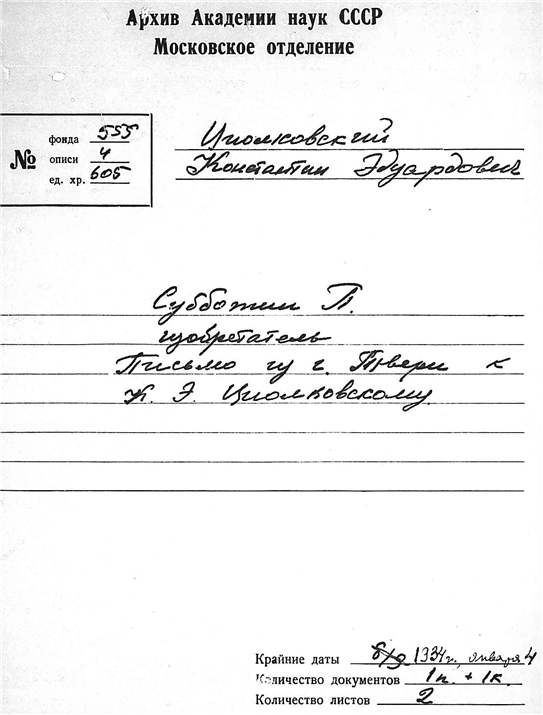 Архив Академии наук СССР
Московское отделение
№
фонда 555
описи 4
ед. хр. 605
Циолковский
Константин Эдуардович
Субботин П.
изобретатель
Письмо из г. Твери к
К. Э. Циолковскому.
Крайние даты б/д 1934 г., января 4
Количество документов 1п. + 1к.
Количество листов 2